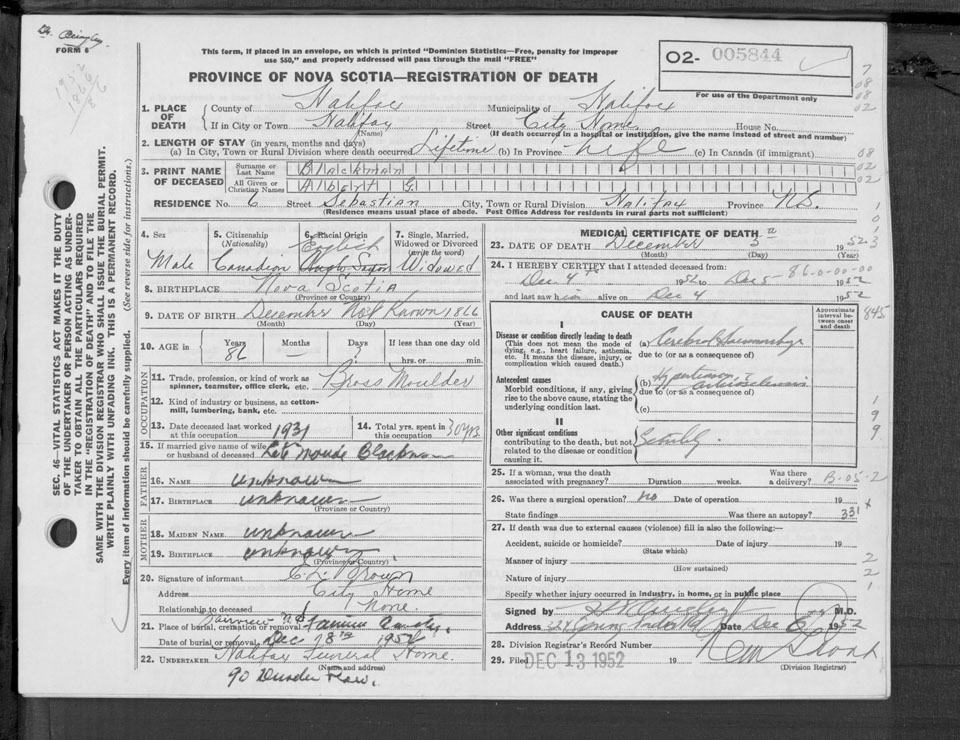 Dr. Quigley
FORM 6
1952
1866
86
This form, if placed in an envelope, on which is printed "Dominion Statistics—Free, penalty for improper
use $50," and properly addressed will pass through the mail "FREE"
O2- 005844
For use of the Department only
PROVINCE OF NOVA SCOTIA—REGISTRATION OF DEATH
1. PLACE OF DEATH
County of Halifax Municipality of Halifax
If in City or Town Halifax Street City Home House No.
(Name) (If death occurred in a hospital or institution, give the name instead of street and number)
2. LENGTH OF STAY (in years, months and days)
(a) In City, Town or Rural Division where death occurred Lifetime (b) In Province Life (c) In Canada (if immigrant)
3. PRINT NAME OF DECEASED
Surname or Last Name Blackman
All Given or Christian Names Albert G.
RESIDENCE No. 6 Street Sebastian City, Town or Rural Division Halifax Province N.S.
(Residence means usual place of abode. Post Office Address for residents in rural parts not sufficient)
4. Sex Male
5. Citizenship (Nationality) Canadian
6. Racial Origin English Anglo Saxon
7. Single, Married, Widowed or Divorced (write the word) Widowed
8. BIRTHPLACE Nova Scotia
(Province or Country)
9. DATE OF BIRTH December Not Known 1866
(Month) (Day) (Year)
10. AGE in Years 86 Months — Days ? If less than one day hrs. or min.
OCCUPATION
11. Trade, profession, or kind of work as spinner, teamster, office clerk, etc. Brass Moulder
12. Kind of industry or business, as cotton-mill, lumbering, bank, etc.
13. Date deceased last worked at this occupation 1931
14. Total yrs. spent in this occupation 30 yrs.
15. If married give name of wife or husband of deceased Late Maude Blackman
FATHER
16. NAME unknown
17. BIRTHPLACE unknown
(Province or Country)
MOTHER
18. MAIDEN NAME unknown
19. BIRTHPLACE unknown
(Province or Country)
20. Signature of informant C. L. Brown
Address City Home
Relationship to deceased None.
21. Place of burial, cremation or removal Fairview
Date of burial or removal Dec 8th 1952
22. UNDERTAKER Halifax Funeral Home.
(Name and address)
90
MEDICAL CERTIFICATE OF DEATH
23. DATE OF DEATH December 5 1952
(Month) (Day) (Year)
24. I HEREBY CERTIFY that I attended deceased from:
Dec 4 1952 to Dec 5 1952
86-0-00-00
and last saw him alive on Dec 4 1952
CAUSE OF DEATH
Approximate interval between onset and death
I
Disease or condition directly leading to death
(This does not mean the mode of dying, e.g., heart failure, asthenia, etc. It means the disease, injury, or complication which caused death.)
(a) Cerebral Haemorrhage
due to (or as a consequence of)
Antecedent causes
Morbid conditions, if any, giving rise to the above cause, stating the underlying condition last.
(b) Hypertension & arteriosclerosis
due to (or as a consequence of)
(c)
II
Other significant conditions
contributing to the death, but not related to the disease or condition causing it.
Senility
25. If a woman, was the death associated with pregnancy? Duration weeks. Was there a delivery? B-05-2
26. Was there a surgical operation? no Date of operation 19
State findings Was there an autopsy? 331 x
27. If death was due to external causes (violence) fill in also the following:—
Accident, suicide or homicide? Date of injury 19
(State which)
Manner of injury
(How sustained)
Nature of injury
Specify whether injury occurred in industry, in home, or in public place
Signed by M.D.
Address Date Dec 6 1952
28. Division Registrar's Record Number
29. Filed DEC 13 1952 19
(Division Registrar)
SEC. 46—VITAL STATISTICS ACT MAKES IT THE DUTY
OF THE UNDERTAKER OR PERSON ACTING AS UNDER-
TAKER TO OBTAIN ALL THE PARTICULARS REQUIRED
IN THE "REGISTRATION OF DEATH" AND TO FILE THE
SAME WITH THE DIVISION REGISTRAR WHO SHALL ISSUE THE BURIAL PERMIT.
WRITE PLAINLY WITH UNFADING INK. THIS IS A PERMANENT RECORD.
Every item of information should be carefully supplied. (See reverse side for instructions.)
7
08
08
02
08
02
02
1
0
1
3
845
1
9
9
2
2
1